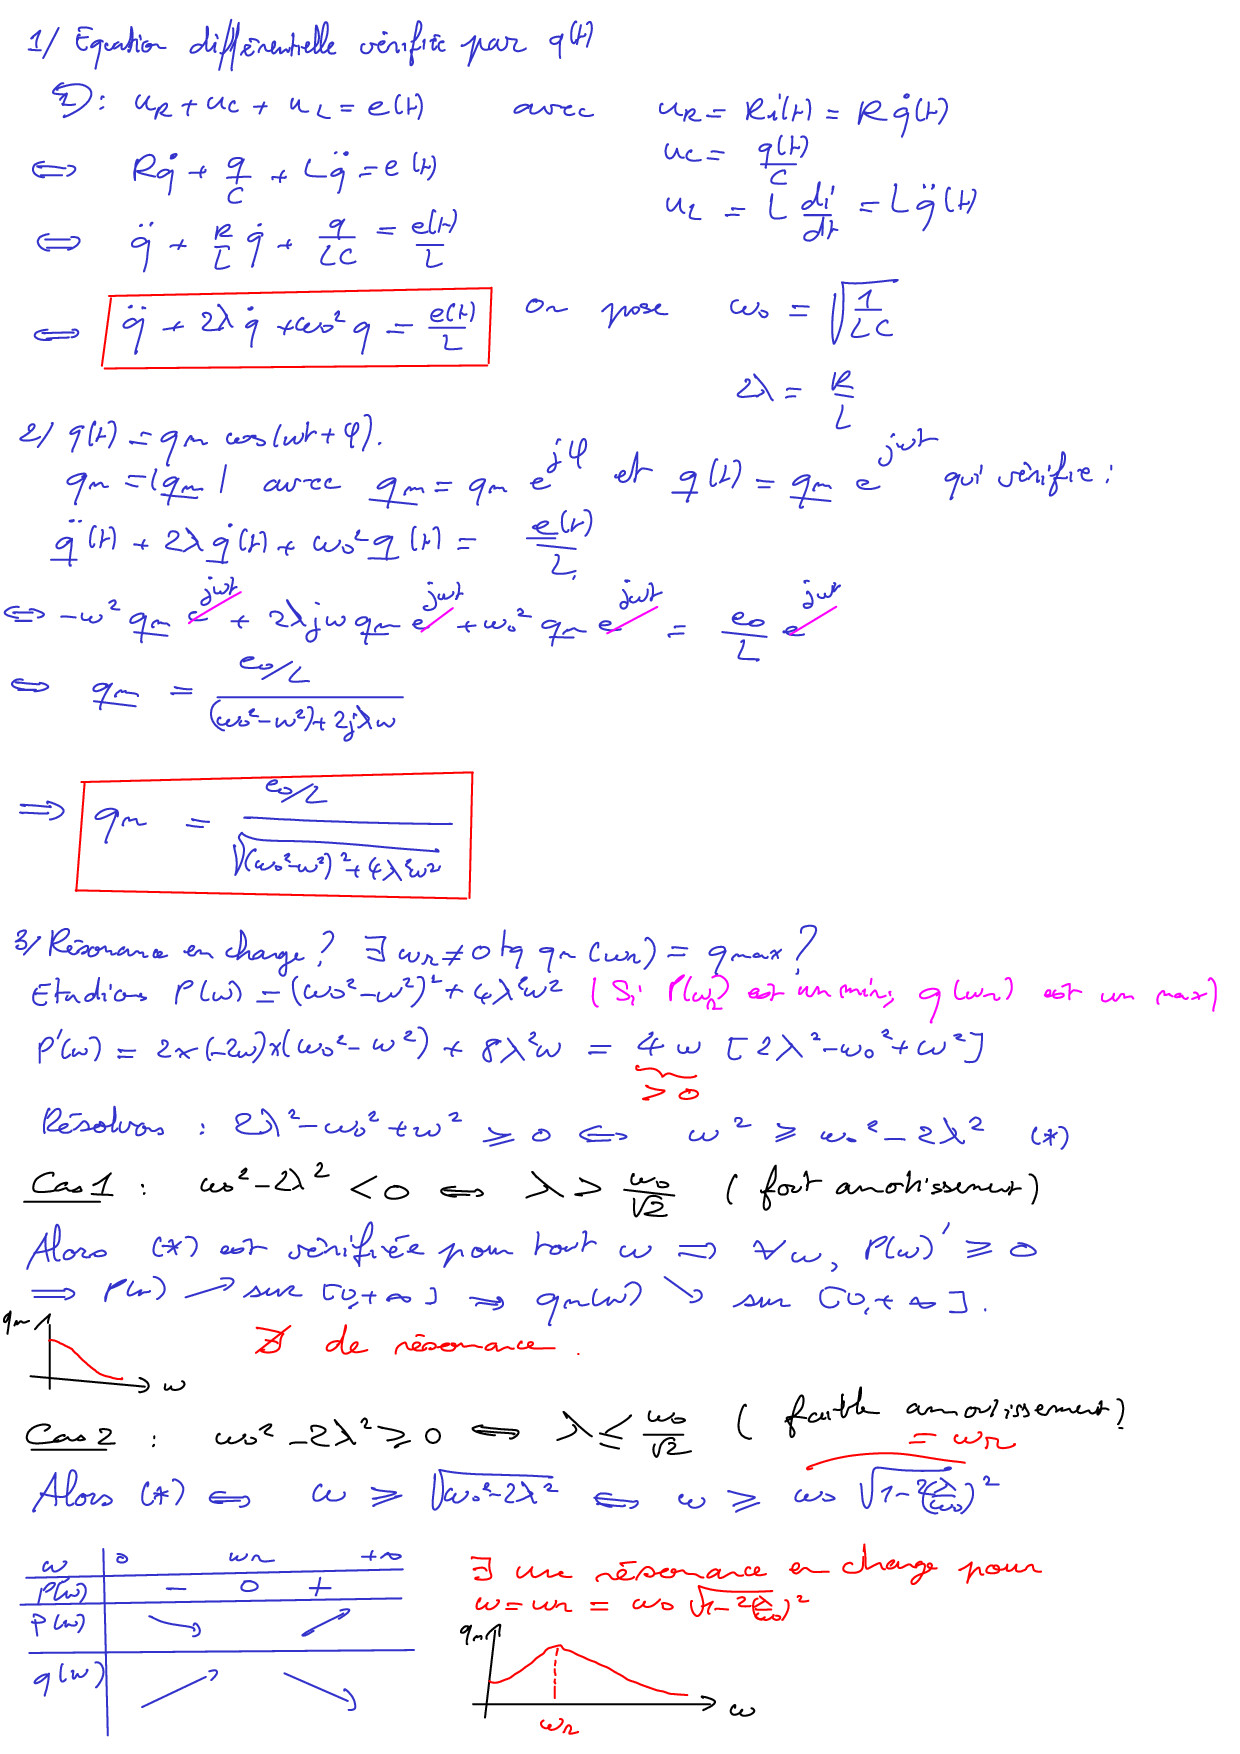 1/ Equation différentielle vérifiée par q(t)
: u_R + u_C + u_L = e(t) avec u_R = Ri(t) = R q̇(t)
u_C = q(t)/C
⇔ R q̇ + q/C + L q̈ = e(t)
u_L = L di/dt = L q̈(t)
⇔ q̈ + R/L q̇ + q/LC = e(t)/L
⇔ q̈ + 2λ q̇ + ω₀² q = e(t)/L On pose ω₀ = √(1/LC)
2λ = R/L
2/ q(t) = q_m cos(ωt + φ).
q_m = |q_m| avec q_m = q_m e^{jφ} et q(t) = q_m e^{jωt} qui vérifie :
q̈(t) + 2λ q̇(t) + ω₀² q(t) = e(t)/L
⇔ -ω² q_m e^{jωt} + 2λjω q_m e^{jωt} + ω₀² q_m e^{jωt} = e₀/L e^{jωt}
⇔ q_m = (e₀/L)/((ω₀²-ω²) + 2jλω)
⇒ q_m = (e₀/L)/√((ω₀²-ω²)² + 4λ²ω²)
3/ Résonance en charge ? ∃ ω_r ≠ 0 tq q_m(ω_r) = q_max ?
Etudions P(ω) = (ω₀²-ω²)² + 4λ²ω² (Si P(ω_r) est un min, q(ω_r) est un max)
P'(ω) = 2×(-2ω)×(ω₀²-ω²) + 8λ²ω = 4ω [2λ²-ω₀²+ω²]
> 0
Résolvons : 2λ²-ω₀²+ω² ⩾ 0 ⇔ ω² ⩾ ω₀²-2λ² (*)
Cas 1 : ω₀²-2λ² < 0 ⇔ λ > ω₀/√2 (fort amortissement)
Alors (*) est vérifiée pour tout ω ⇒ ∀ω, P(ω)' ⩾ 0
⇒ P(ω) ↗ sur [0,+∞] ⇒ q_m(ω) ↘ sur [0,+∞].
q_m
∄ de résonance.
ω
Cas 2 : ω₀²-2λ² ⩾ 0 ⇔ λ ≤ ω₀/√2 (faible amortissement)
= ω_r
Alors (*) ⇔ ω ⩾ √(ω₀²-2λ²) ⇔ ω ⩾ ω₀ √(1-2(λ/ω₀)²)
ω 0 ω_r +∞
P'(ω) - 0 +
P(ω) ↘ ↗
q(ω) ↗ ↘
∃ une résonance en charge pour
ω = ω_r = ω₀ √(1-2(λ/ω₀)²)
q_m
ω
ω_r